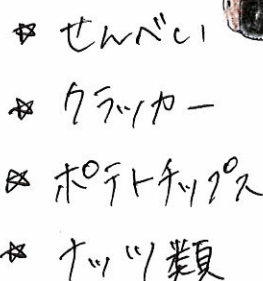 ☆ せんべい
☆ クラッカー
☆ ポテトチップス
☆ ナッツ類